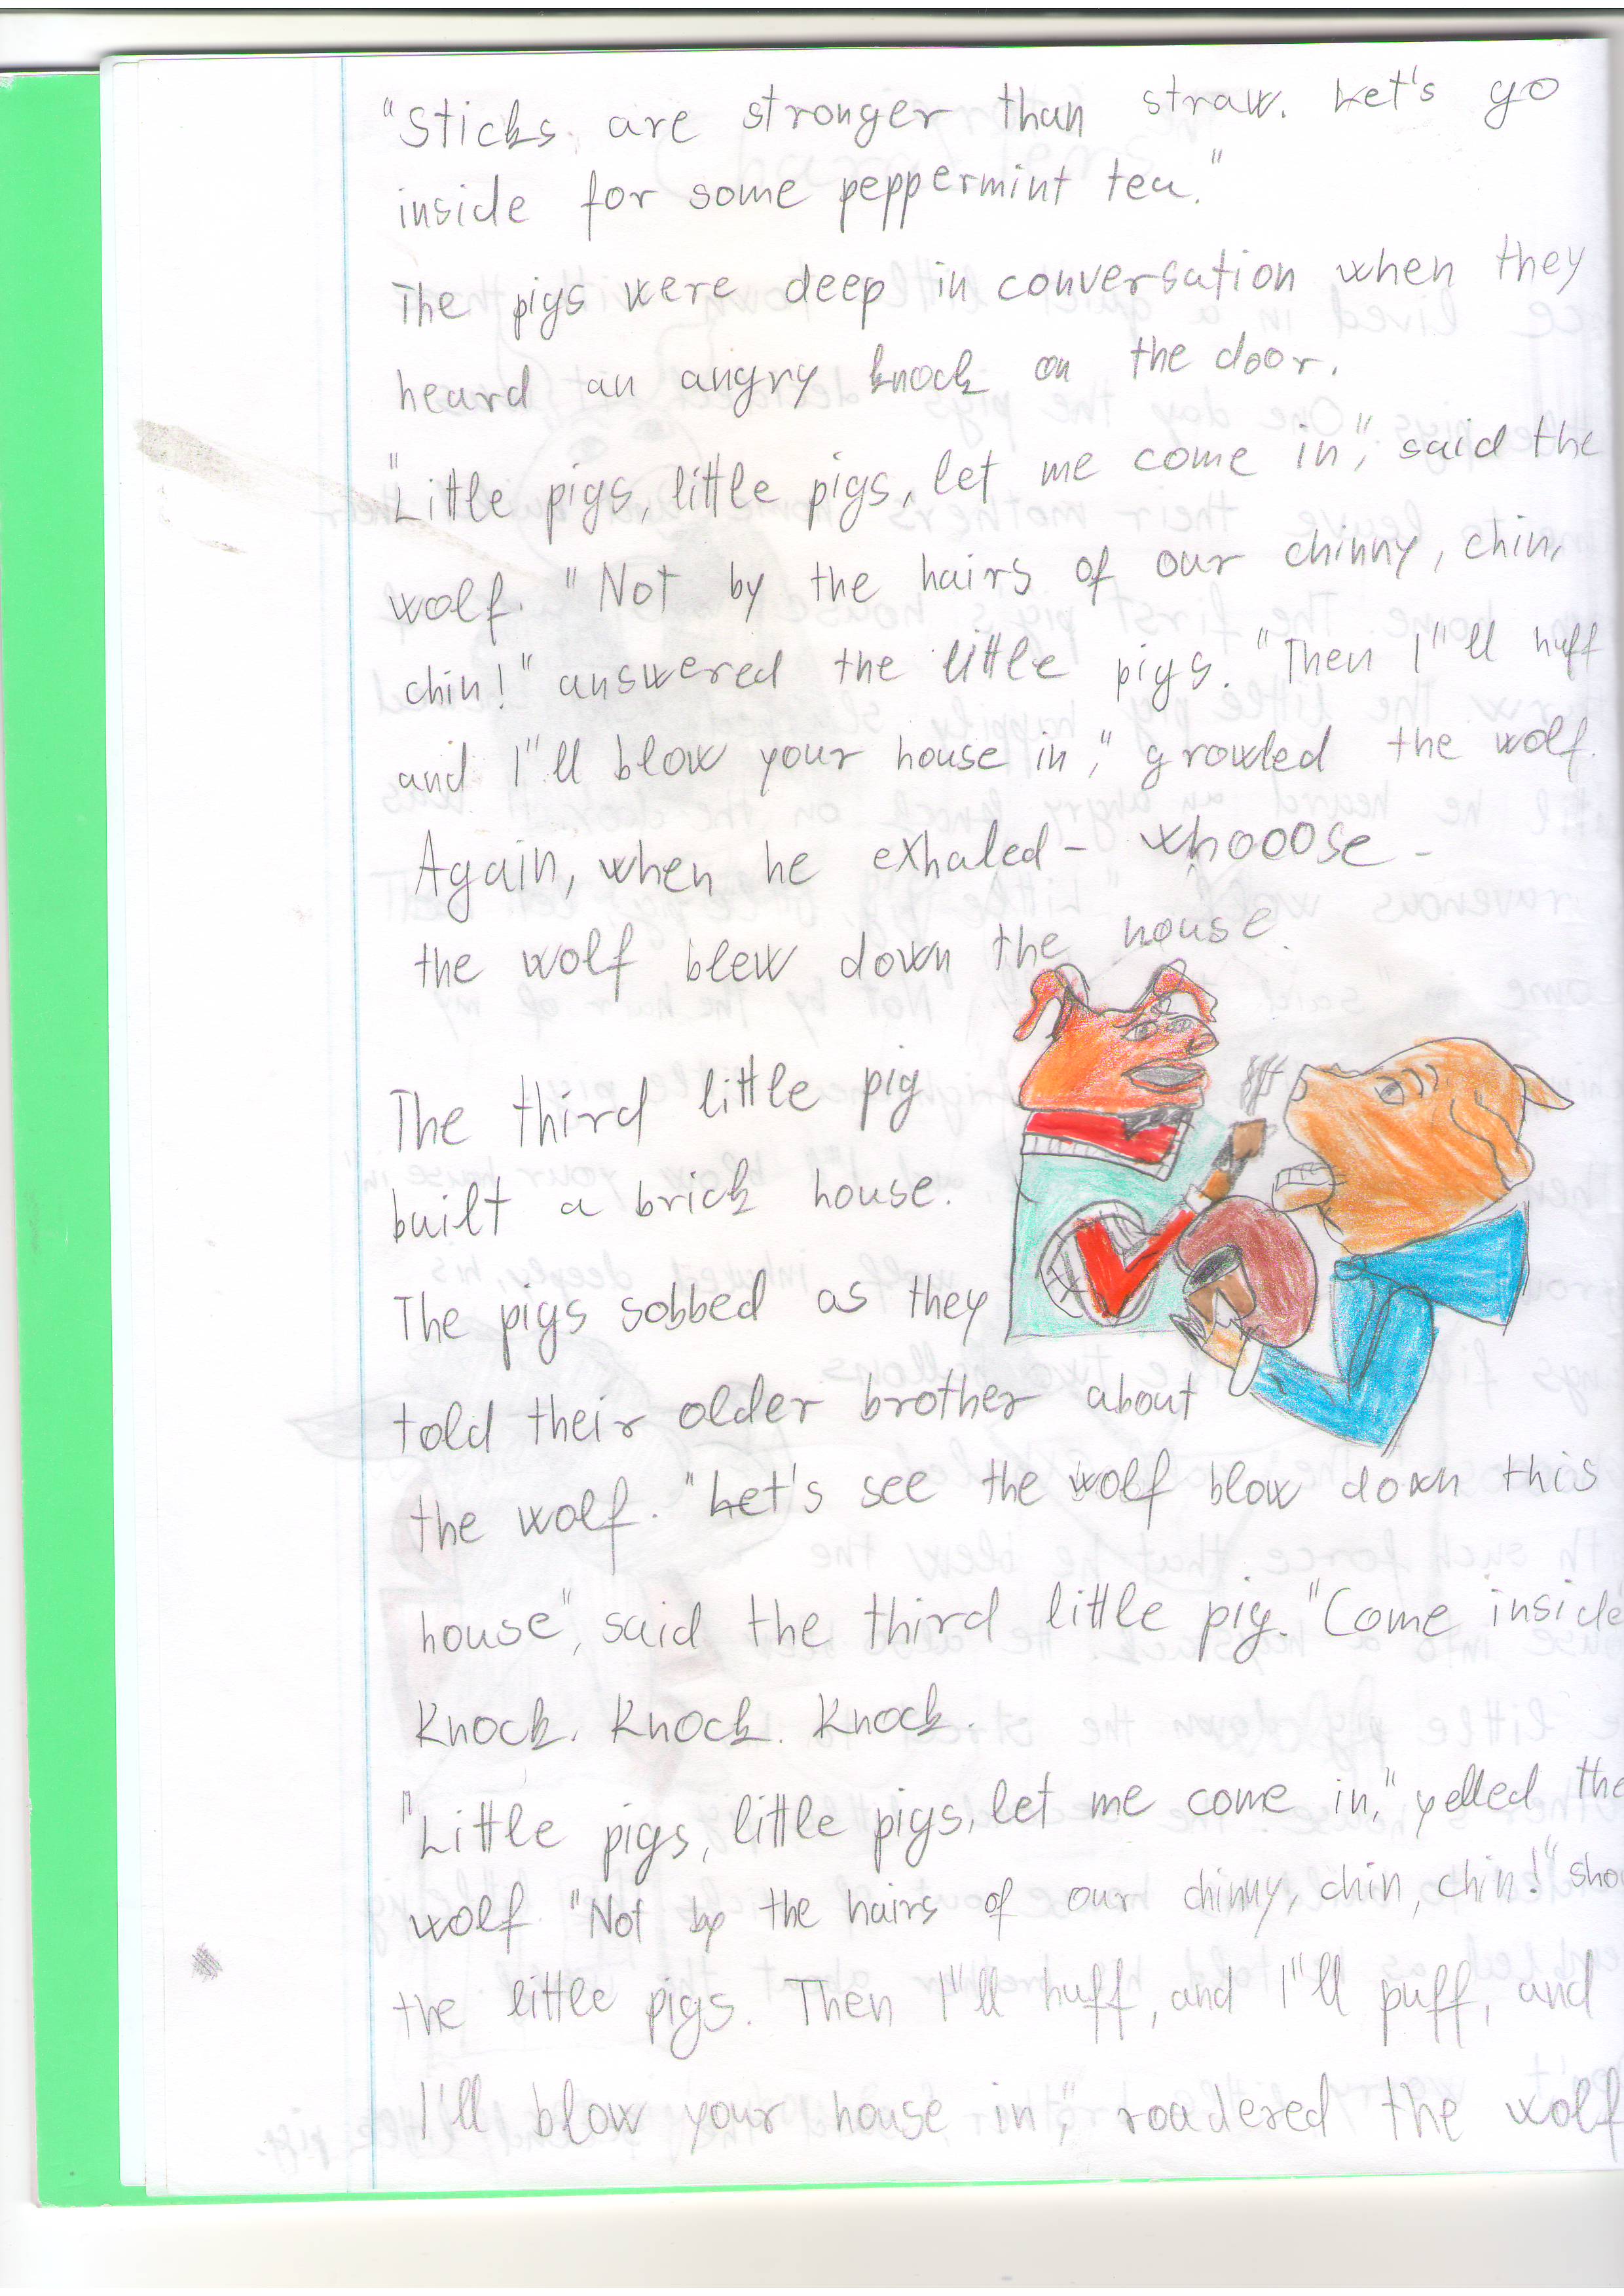 "Sticks are stronger than straw. Let's go
inside for some peppermint tea."
The pigs were deep in conversation when they
heard an angry knock on the door.
"Little pigs, little pigs, let me come in", said the
wolf. "Not by the hairs of our chinny, chin,
chin!" answered the little pigs. "Then I"ll huff
and I"ll blow your house in", growled the wolf.
Again, when he exhaled - whooose -
the wolf blew down the house.
The third little pig
built a brick house.
The pigs sobbed as they
told their older brother about
the wolf. "Let's see the wolf blow down this
house", said the third little pig. "Come inside
Knock. Knock. Knock.
"Little pigs, little pigs, let me come in," yelled the
wolf "Not by the hairs of our chinny, chin, chin!"
the little pigs. Then I"ll huff, and I"ll puff, and
I'll blow your house in", roadered the wolf